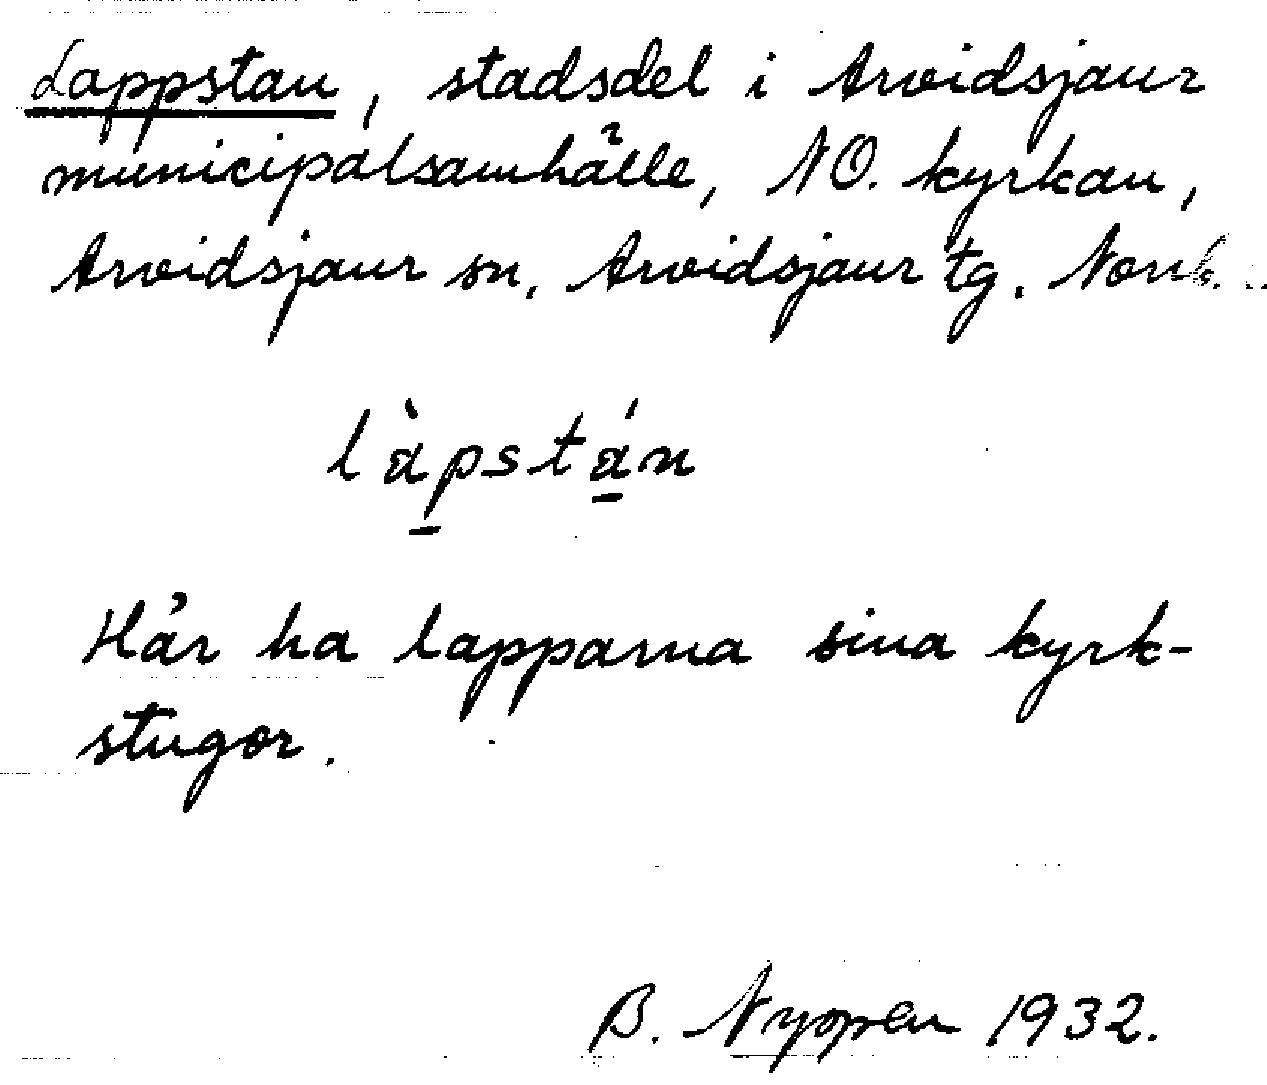 Lappstan, stadsdel i Arvidsjaur
municipalsamhälle, NO. kyrkan,
Arvidsjaur sn. Arvidsjaur tg. Norrb.
làpstán
Här ha lapparna sina kyrk-
stugor.
B. Nyppen 1932.